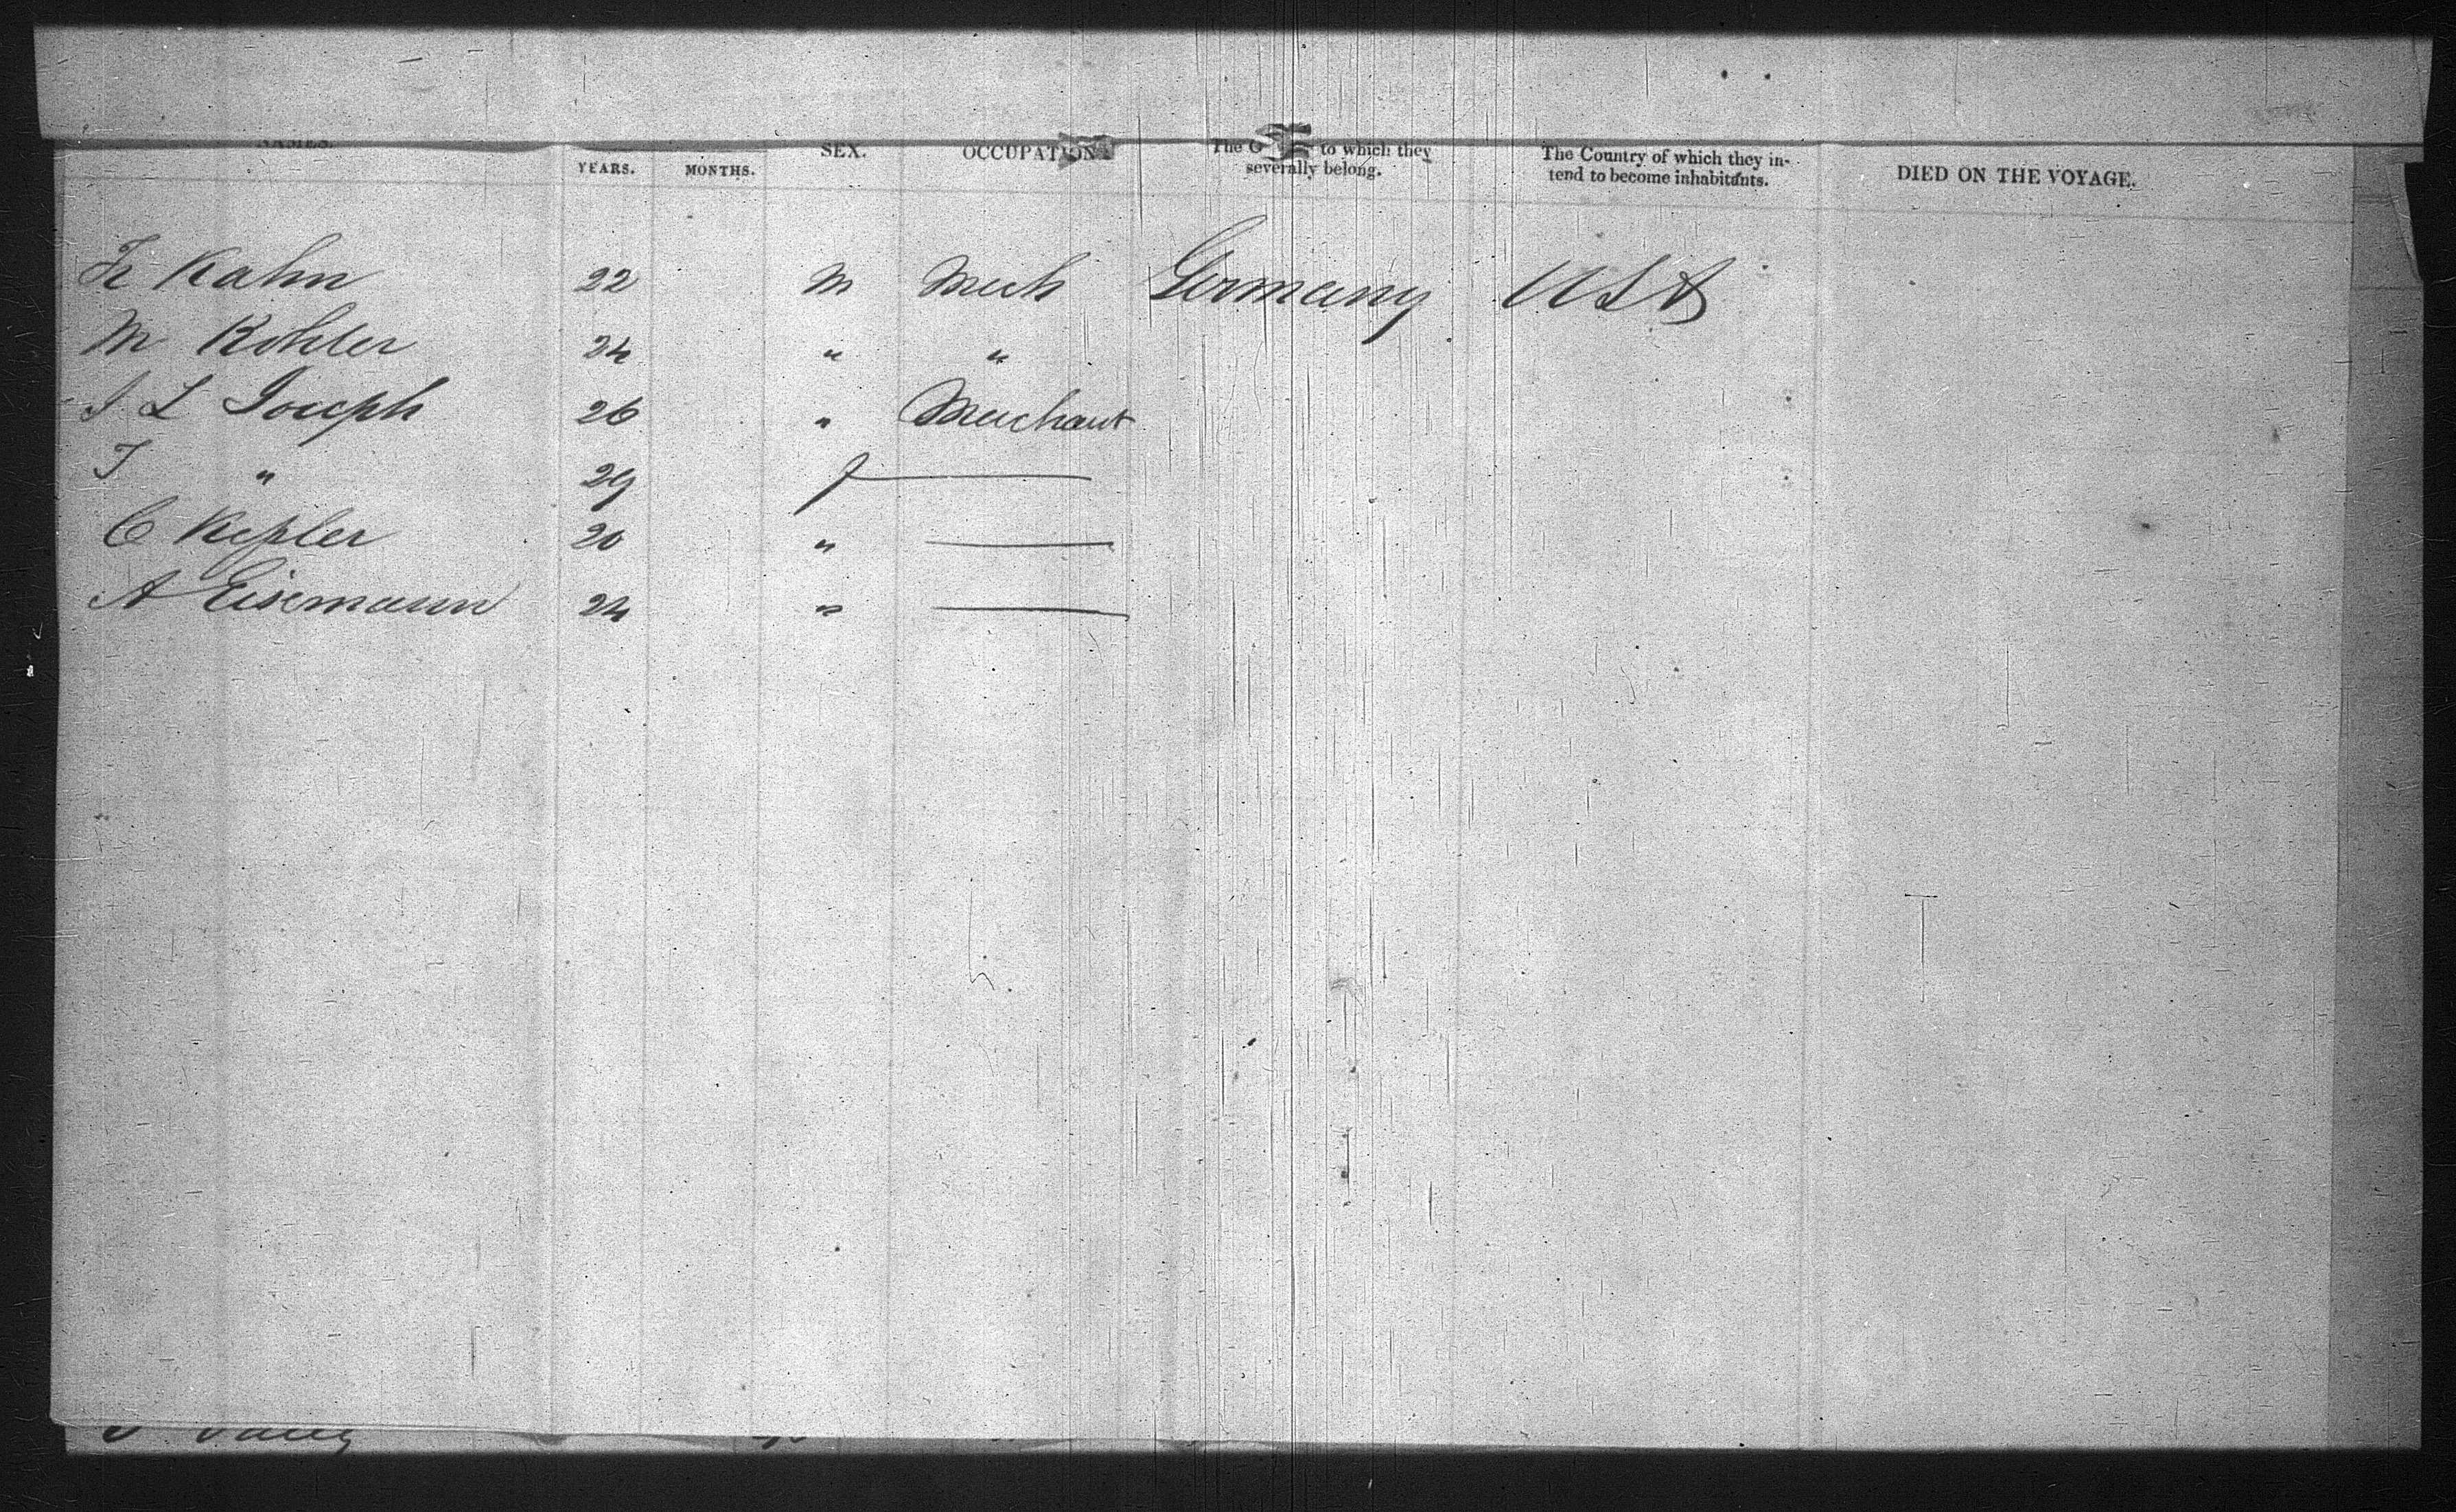 NAMES. YEARS. MONTHS. SEX. OCCUPATION The to which they severally belong. The Country of which they intend to become inhabitants. DIED ON THE VOYAGE.
Kahn 22 M Mech Germany USA
M Kohler 24 " "
J L Joseph 26 " Merchant
J " 29 f
C Kepler 20 "
A Eisemann 24 "